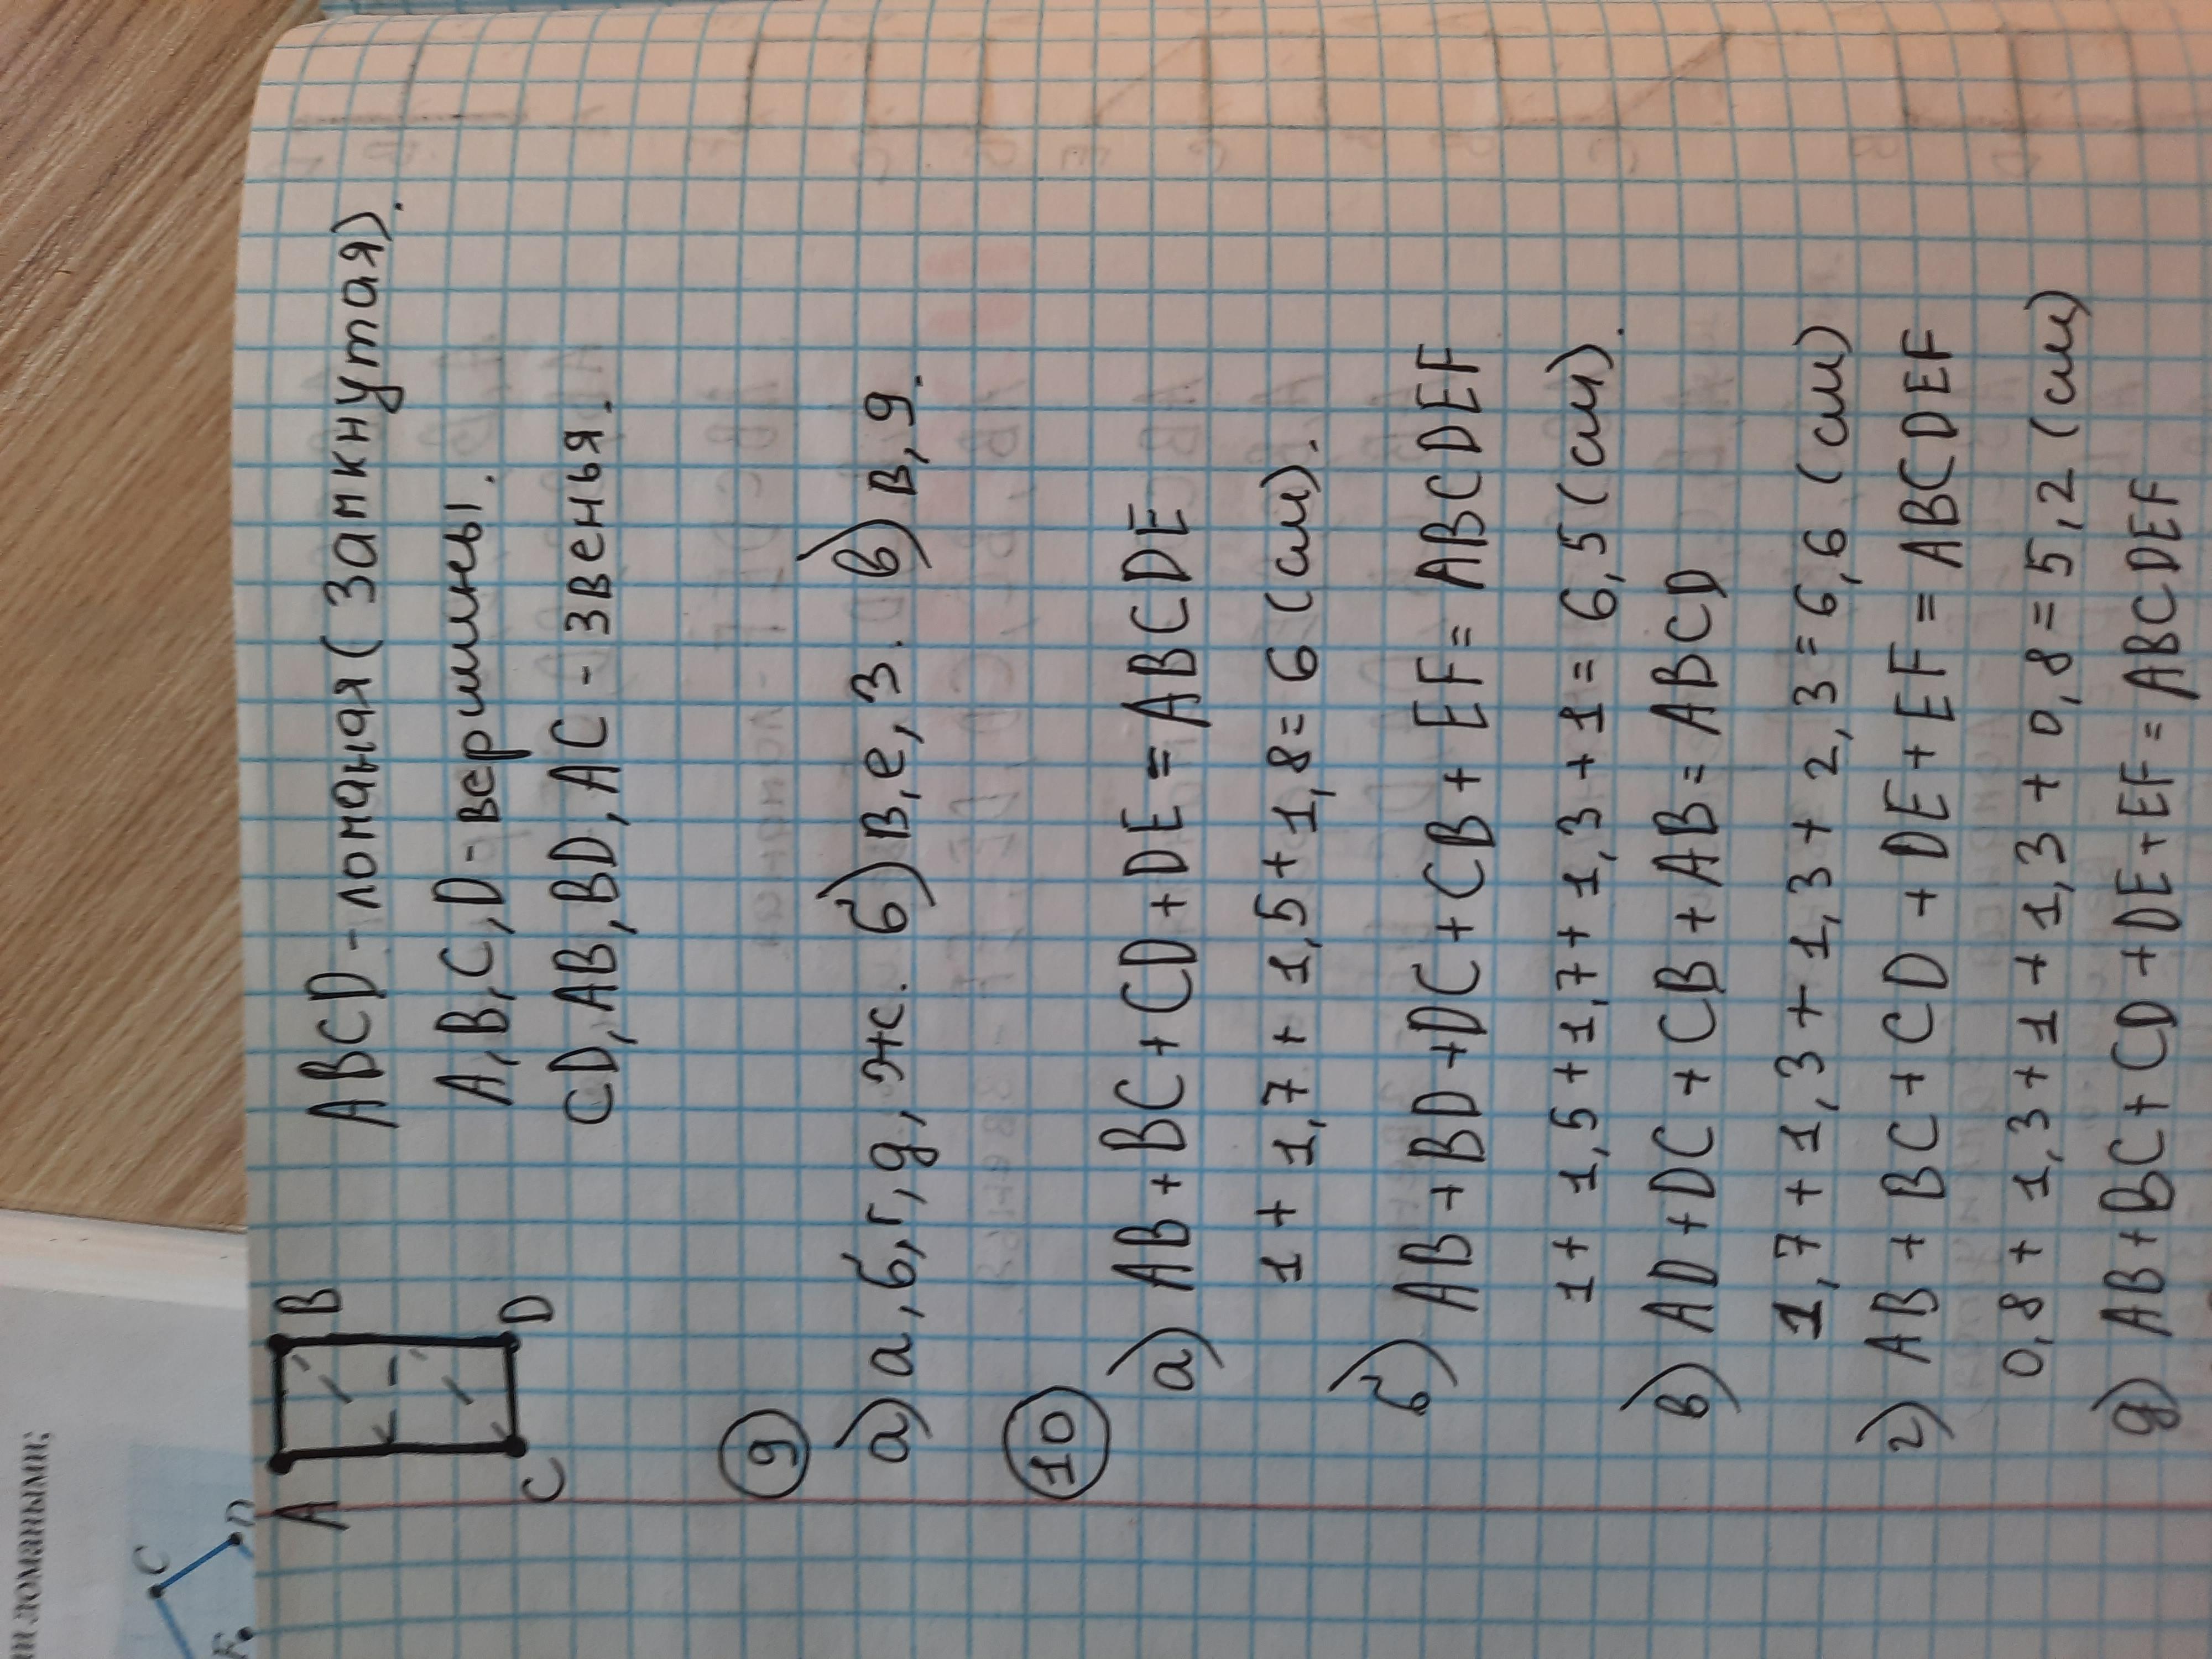 A B
C D
ABCD - ломаная (Замкнутая).
A, B, C, D - вершины.
CD, AB, BD, AC - звенья.
9
а) а, б, г, д, ж. б) в, е, з. в) в, д.
10
а) AB + BC + CD + DE = ABCDE
1 + 1,7 + 1,5 + 1,8 = 6 (см).
б) AB + BD + DC + CB + EF = ABCDEF
1 + 1,5 + 1,7 + 1,3 + 1 = 6,5 (см).
в) AD + DC + CB + AB = ABCD
1,7 + 1,3 + 1,3 + 2,3 = 6,6 (см)
г) AB + BC + CD + DE + EF = ABCDEF
0,8 + 1,3 + 1 + 1,3 + 0,8 = 5,2 (см)
д) AB + BC + CD + DE + EF = ABCDEF
ломаными;
C